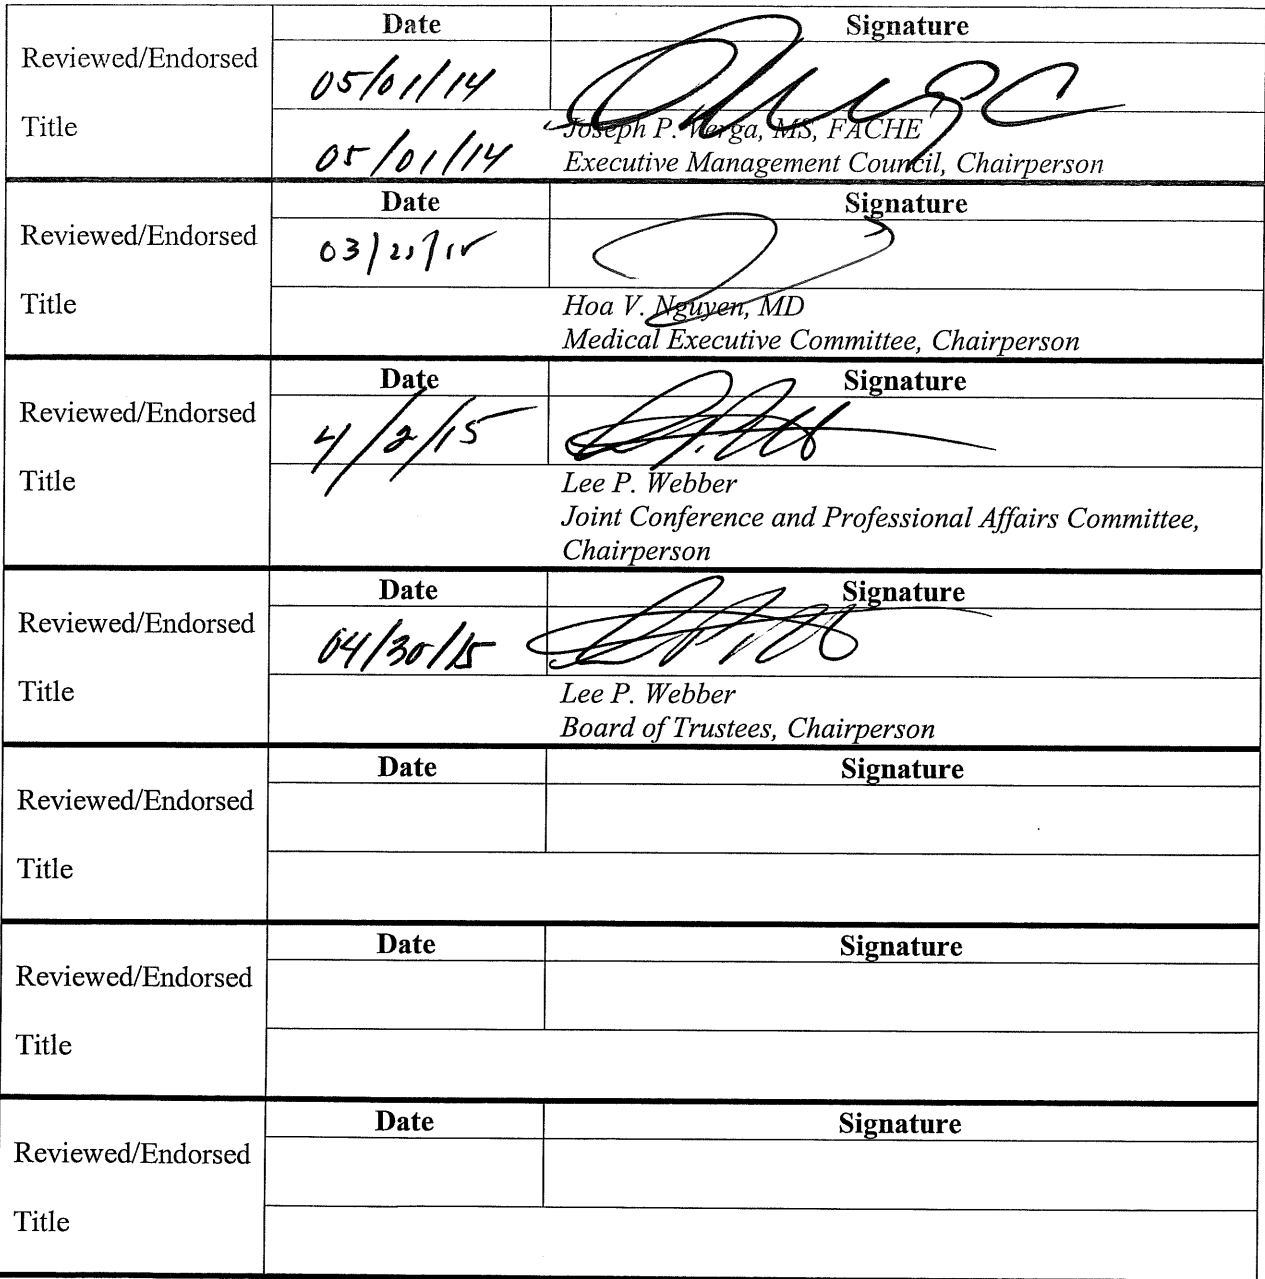 Date Signature
Reviewed/Endorsed 05/01/14
Title Joseph P. Verga, MS, FACHE
05/01/14 Executive Management Council, Chairperson
Date Signature
Reviewed/Endorsed
Title Hoa V. Nguyen, MD
Medical Executive Committee, Chairperson
Date Signature
Reviewed/Endorsed 4/2/15
Title Lee P. Webber
Joint Conference and Professional Affairs Committee,
Chairperson
Date Signature
Reviewed/Endorsed 04/30/15
Title Lee P. Webber
Board of Trustees, Chairperson
Date Signature
Reviewed/Endorsed
Title
Date Signature
Reviewed/Endorsed
Title
Date Signature
Reviewed/Endorsed
Title